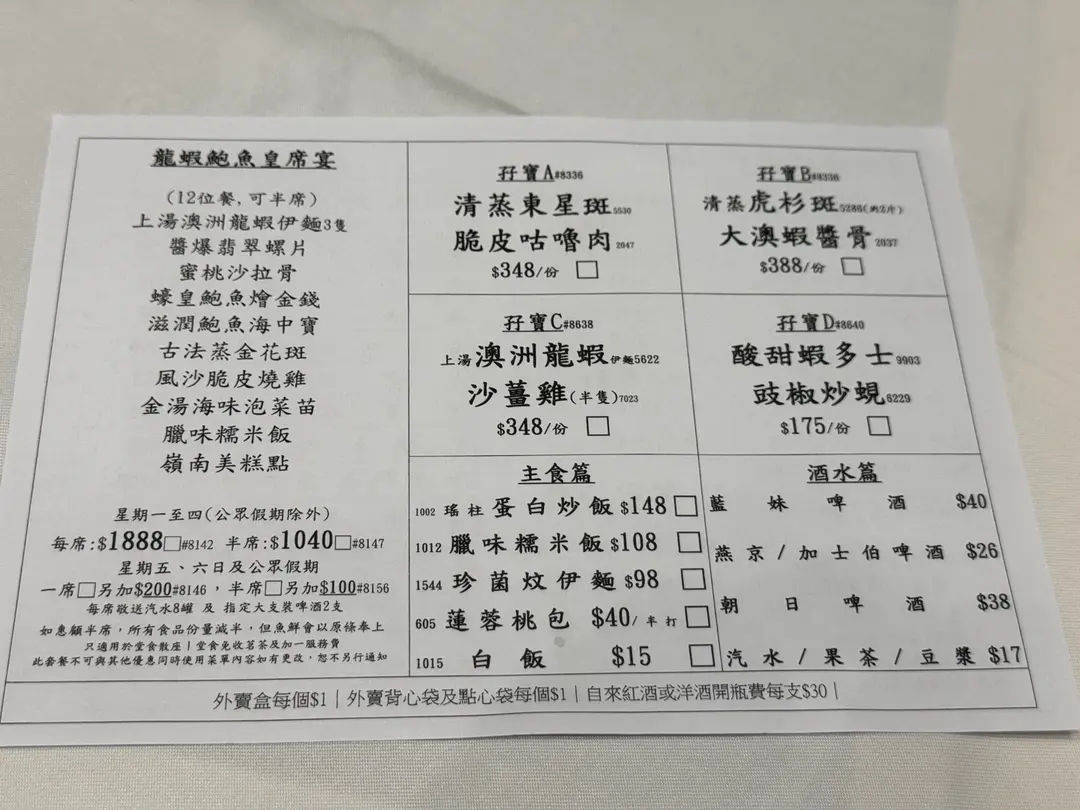 龍蝦鮑魚皇席宴
(12位餐,可半席)
上湯澳洲龍蝦伊麵3隻
醬爆翡翠螺片
蜜桃沙拉骨
蠔皇鮑魚燴金錢
滋潤鮑魚海中寶
古法蒸金花斑
風沙脆皮燒雞
金湯海味泡菜苗
臘味糯米飯
嶺南美糕點
星期一至四(公眾假期除外)
每席:$1888□#8142 半席:$1040□#8147
星期五、六日及公眾假期
一席□另加$200#8146,半席□另加$100#8156
每席敬送汽水8罐 及 指定大支裝啤酒2支
如惠顧半席,所有食品份量減半,但魚鮮會以原條奉上
只適用於堂食散座|堂食免收茗茶及加一服務費
此套餐不可與其他優惠同時使用菜單內容如有更改,恕不另行通知
孖寶A#8336
清蒸東星斑5530
脆皮咕嚕肉2047
$348/份 □
孖寶B#8336
清蒸虎杉斑5286(約2斤)
大澳蝦醬骨2037
$388/份 □
孖寶C#8638
上湯澳洲龍蝦伊麵5622
沙薑雞(半隻)7023
$348/份 □
孖寶D#8640
酸甜蝦多士9903
豉椒炒蜆6229
$175/份 □
主食篇
1002 瑤柱蛋白炒飯 $148 □
1012 臘味糯米飯 $108 □
1544 珍菌炆伊麵 $98 □
605 蓮蓉桃包 $40/半打 □
1015 白飯 $15 □
酒水篇
藍妹啤酒 $40
燕京/加士伯啤酒 $26
朝日啤酒 $38
汽水/果茶/豆漿 $17
外賣盒每個$1|外賣背心袋及點心袋每個$1|自來紅酒或洋酒開瓶費每支$30|